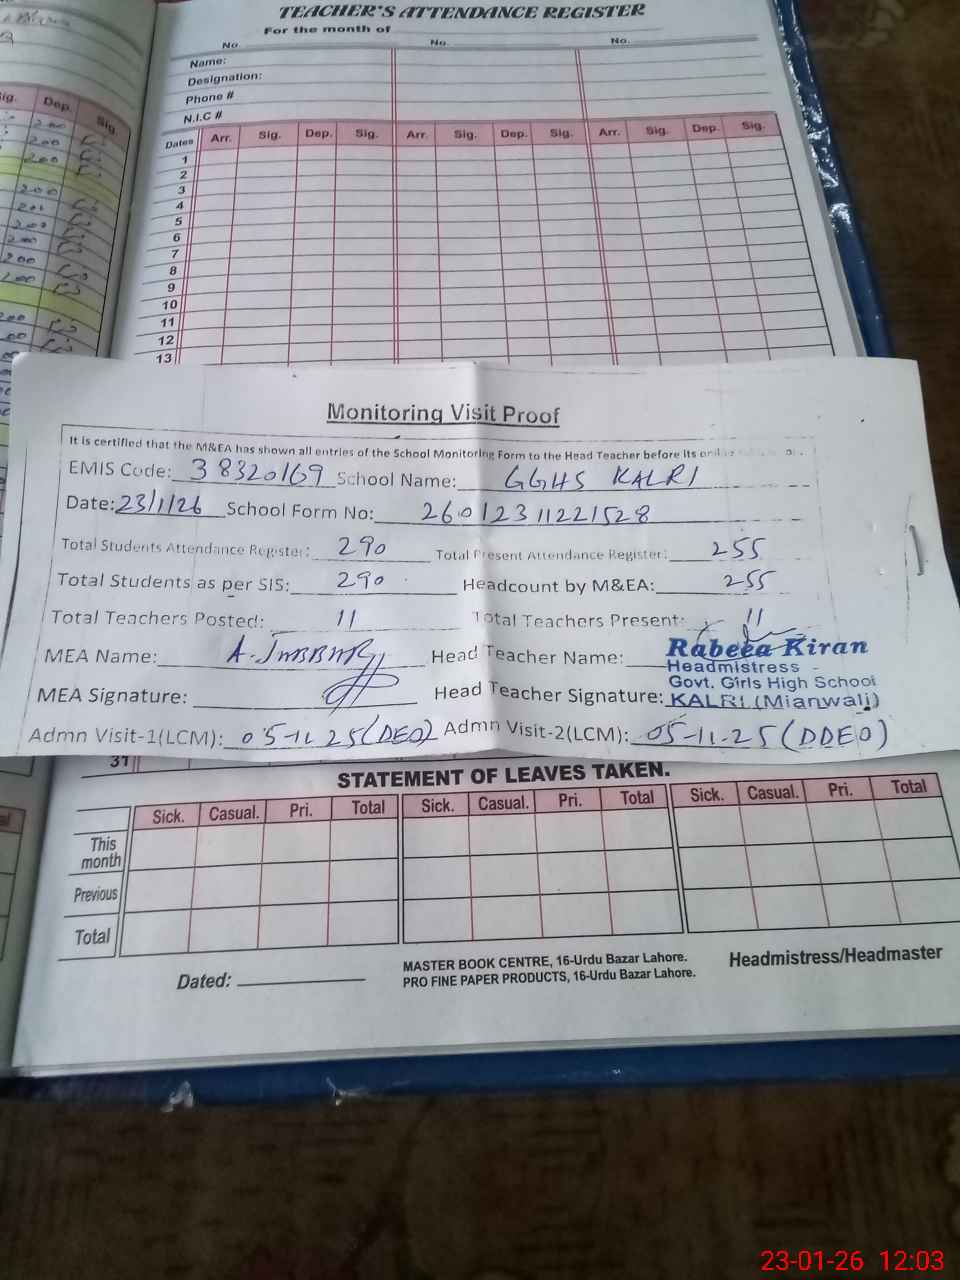 TEACHER'S ATTENDANCE REGISTER
For the month of
No. No. No.
Name:
Designation:
Phone #
N.I.C #
Sig. Dep. Sig.
Dates Arr. Sig. Dep. Sig. Arr. Sig. Dep. Sig. Arr. Sig. Dep. Sig.
1
2
3
4
5
6
7
8
9
10
11
12
13
200
200
200
200
200
200
200
200
Monitoring Visit Proof
It is certified that the M&EA has shown all entries of the School Monitoring Form to the Head Teacher before its
EMIS Code: 38320169 School Name: GGHS KALRI
Date: 23/1/26 School Form No: 26012311221528
Total Students Attendance Register: 290 Total Present Attendance Register: 255
Total Students as per SIS: 290 Headcount by M&EA: 255
Total Teachers Posted: 11 Total Teachers Present: 11
MEA Name: A. JABBAR Head Teacher Name: Rabeea Kiran
Headmistress
Govt. Girls High School
MEA Signature: Head Teacher Signature: KALRI (Mianwali)
Admn Visit-1(LCM): 05-11-25(DEO) Admn Visit-2(LCM): 05-11-25(DDEO)
31
STATEMENT OF LEAVES TAKEN.
Sick. Casual. Pri. Total Sick. Casual. Pri. Total Sick. Casual. Pri. Total
This month
Previous
Total
Dated:
MASTER BOOK CENTRE, 16-Urdu Bazar Lahore.
PRO FINE PAPER PRODUCTS, 16-Urdu Bazar Lahore.
Headmistress/Headmaster
23-01-26 12:03